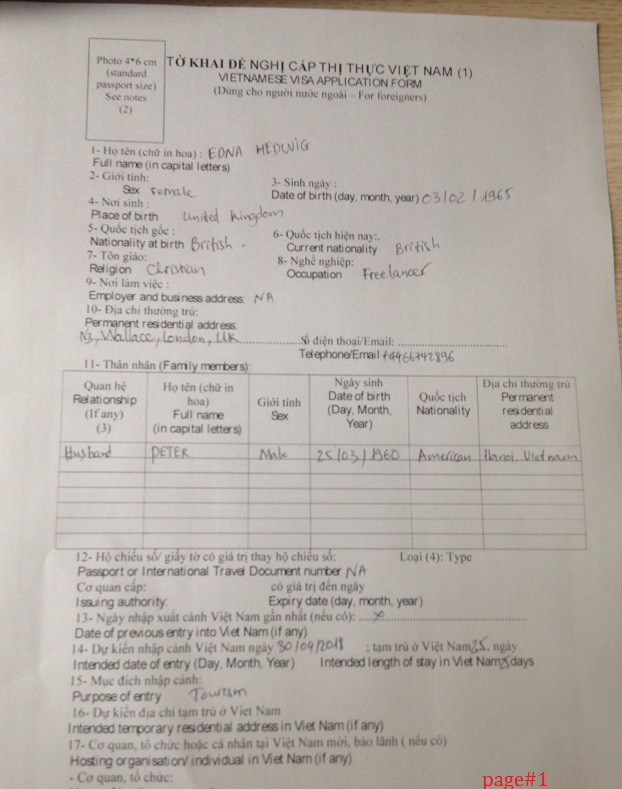 Photo 4*6 cm
(standard
passport size)
See notes
(2)
TỜ KHAI ĐỀ NGHỊ CẤP THỊ THỰC VIỆT NAM (1)
VIETNAMESE VISA APPLICATION FORM
(Dùng cho người nước ngoài – For foreigners)
1- Họ tên (chữ in hoa) : EDNA HEDWIG
Full name (in capital letters)
2- Giới tính: 3- Sinh ngày :
Sex Female Date of birth (day, month, year) 03/02/1965
4- Nơi sinh :
Place of birth United Kingdom
5- Quốc tịch gốc : 6- Quốc tịch hiện nay:.
Nationality at birth British . Current nationality British
7- Tôn giáo: 8- Nghề nghiệp:
Religion Christian Occupation Freelancer
9- Nơi làm việc :
Employer and business address: NA
10- Địa chỉ thường trú:
Permanent residential address
N3, Wallace, London, UK Số điện thoại/Email:
Telephone/Email +4466742896
11- Thân nhân (Family members)
Quan hệ Relationship (If any) (3)
Họ tên (chữ in hoa) Full name (in capital letters)
Giới tính Sex
Ngày sinh Date of birth (Day, Month, Year)
Quốc tịch Nationality
Địa chỉ thường trú Permanent residential address
Husband PETER Male 25/03/1960 American Hanoi, Vietnam
12- Hộ chiếu số/ giấy tờ có giá trị thay hộ chiếu số: Loại (4): Type
Passport or International Travel Document number NA
Cơ quan cấp: có giá trị đến ngày
Issuing authority: Expiry date (day, month, year)
13- Ngày nhập xuất cảnh Việt Nam gần nhất (nếu có):
Date of previous entry into Viet Nam (if any)
14- Dự kiến nhập cảnh Việt Nam ngày 30/04/2018 ; tạm trú ở Việt Nam 25. ngày
Intended date of entry (Day, Month, Year) Intended length of stay in Viet Nam days
15- Mục đích nhập cảnh:
Purpose of entry Tourism
16- Dự kiến địa chỉ tạm trú ở Việt Nam
Intended temporary residential address in Viet Nam (if any)
17- Cơ quan, tổ chức hoặc cá nhân tại Việt Nam mời, bảo lãnh ( nếu có)
Hosting organisation/ individual in Viet Nam (if any)
- Cơ quan, tổ chức:
page#1